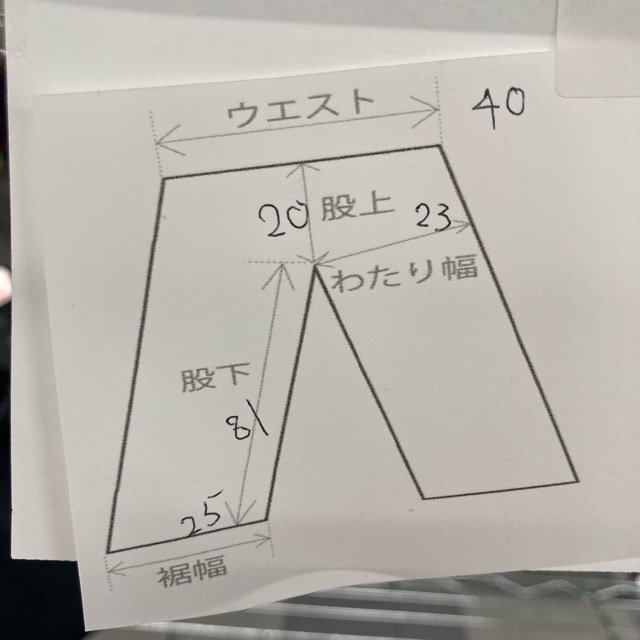 ウエスト
40
20
股上
23
わたり幅
股下
81
25
裾幅